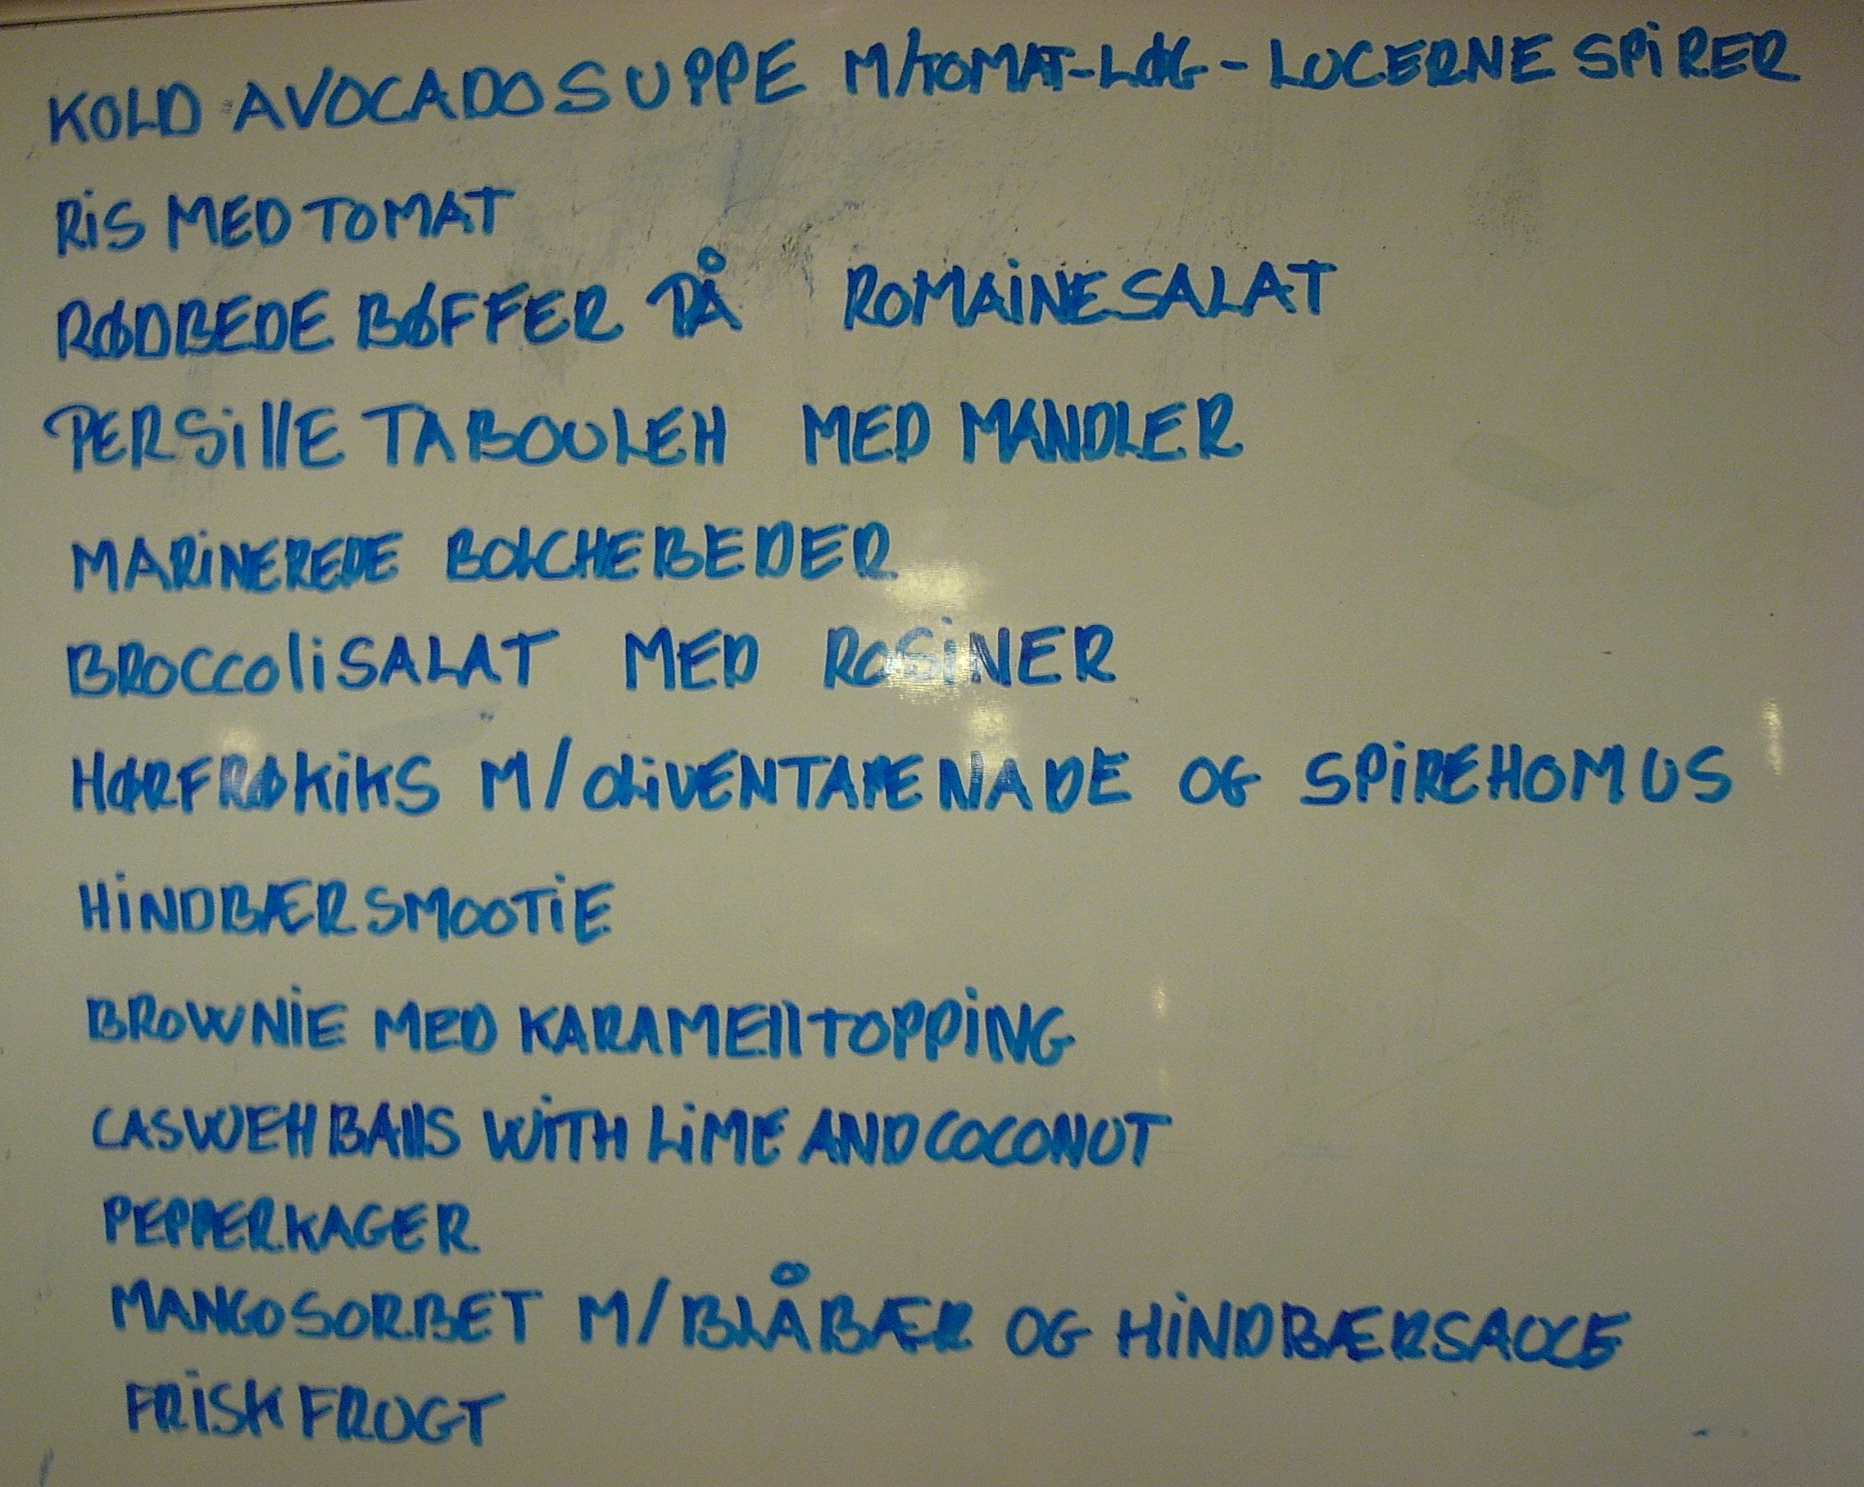 KOLD AVOCADOSUPPE M/TOMAT-LØG - LUCERNE SPIRER
RIS MED TOMAT
RØDBEDE BØFFER PÅ ROMAINESALAT
PERSILLE TABOULEH MED MANDLER
MARINEREDE BOLCHEBEDER
BROCCOLISALAT MED ROSINER
HØRFRØKIKS M/OLIVENTAPENADE OG SPIREHOMUS
HINDBÆRSMOOTIE
BROWNIE MED KARAMELLTOPPING
CASWEH BALLS WITH LIME AND COCONUT
PEPPERKAGER
MANGOSORBET M/BLÅBÆR OG HINDBÆRSAUCE
FRISK FRUGT